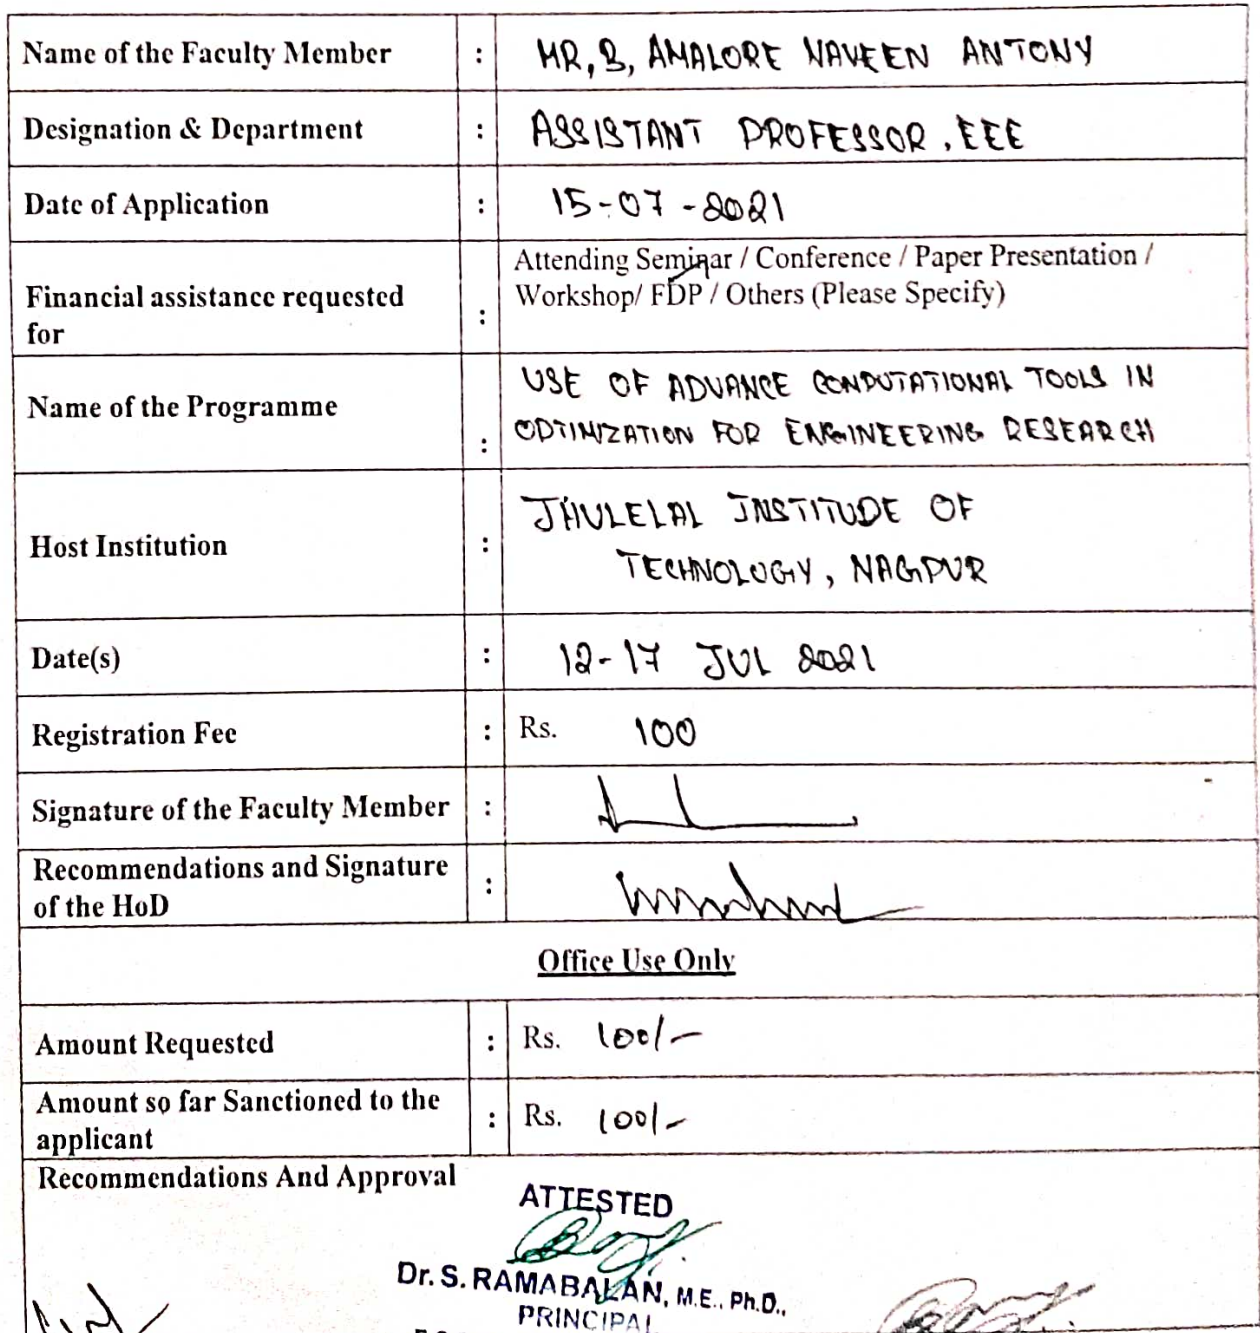 Name of the Faculty Member : MR, B, AMALORE NAVEEN ANTONY
Designation & Department : ASSISTANT PROFESSOR, EEE
Date of Application : 15-07-2021
Financial assistance requested for : Attending Seminar / Conference / Paper Presentation /
Workshop/ FDP / Others (Please Specify)
Name of the Programme : USE OF ADVANCE COMPUTATIONAL TOOLS IN
OPTIMIZATION FOR ENGINEERING RESEARCH
Host Institution : JHULELAL INSTITUDE OF
TECHNOLOGY, NAGPUR
Date(s) : 12-17 JUL 2021
Registration Fee : Rs. 100
Signature of the Faculty Member :
Recommendations and Signature
of the HoD :
Office Use Only
Amount Requested : Rs. 100/-
Amount so far Sanctioned to the
applicant : Rs. 100/-
Recommendations And Approval
ATTESTED
Dr. S. RAMABALAN, M.E., Ph.D.,
PRINCIPAL